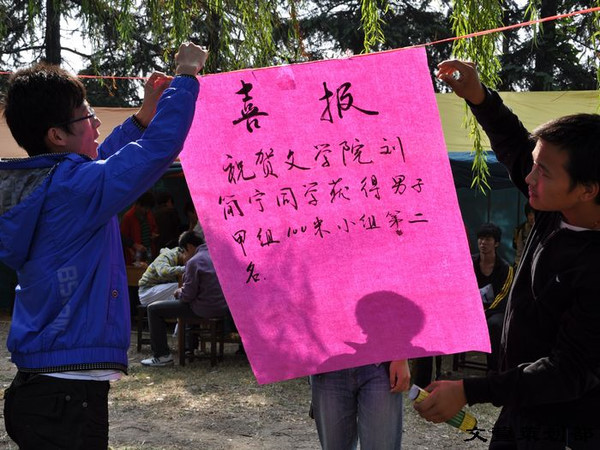 喜报
祝贺文学院刘
甯宁同学获得男子
甲组100米小组第二
名.